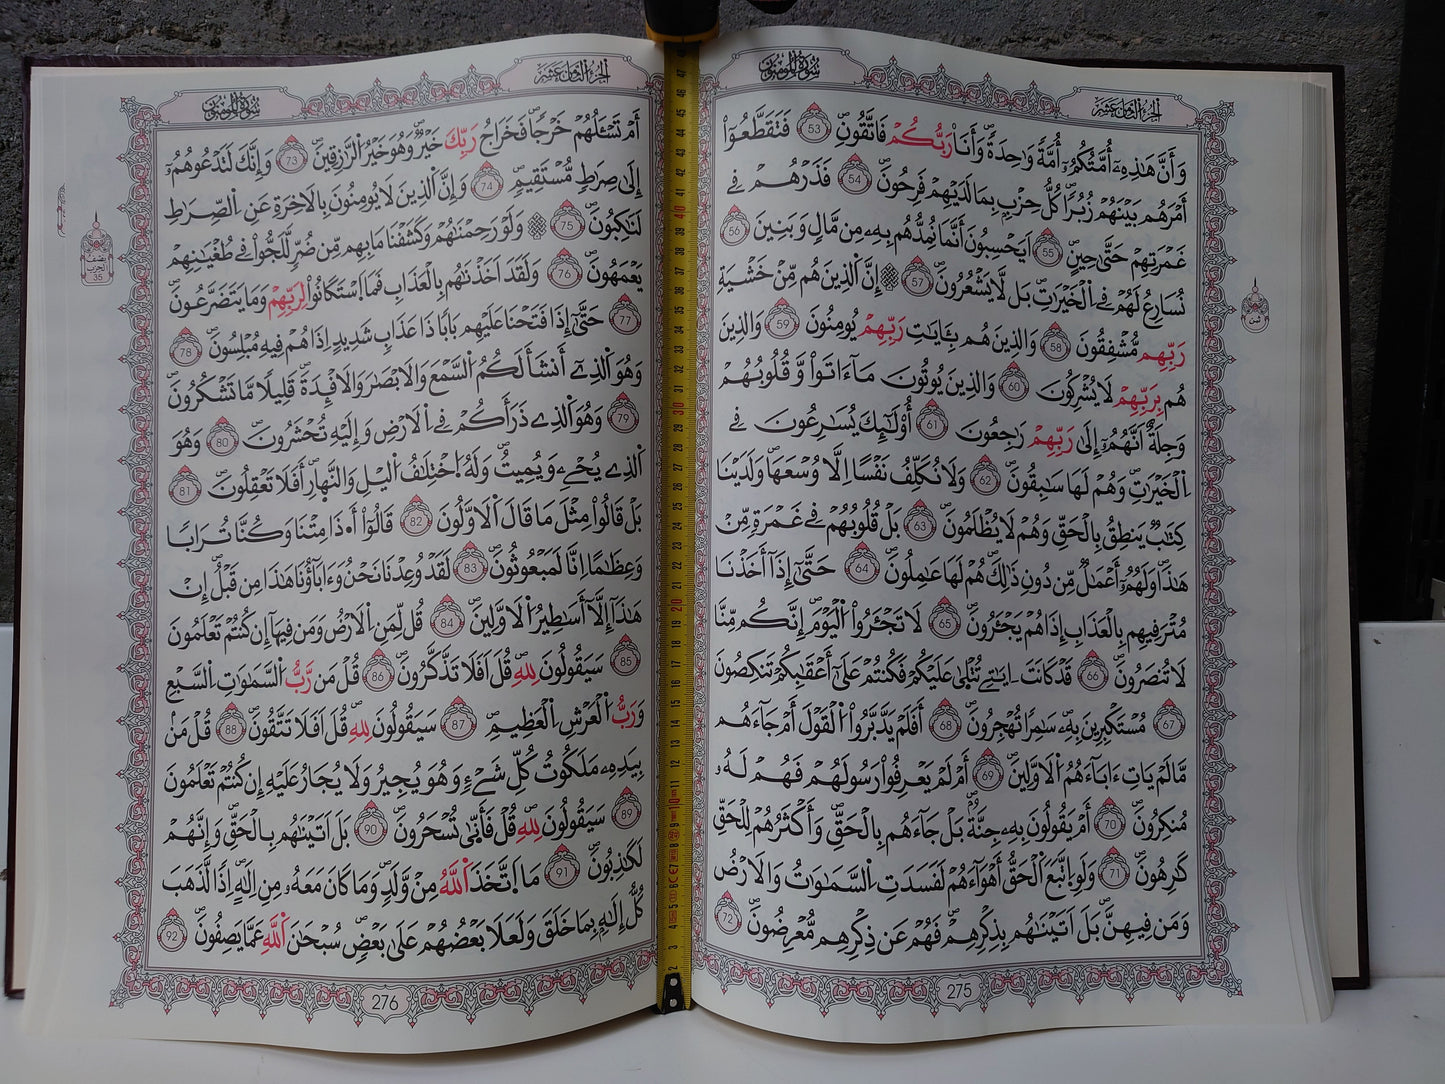 الجزء الثامن عشر
سورة المومنون
وأن هذه أمتكم أمة واحدة وأنا ربكم فاتقون 53 فتقطعوا
أمرهم بينهم زبرا كل حزب بما لديهم فرحون 54 فذرهم في
غمرتهم حتى حين 55 ايحسبون أنما نمدهم به من مال وبنين 56
نسارع لهم في الخيرات بل لا يشعرون 57 إن الذين هم من خشية
ربهم مشفقون 58 والذين هم بـايات ربهم يومنون 59 والذين
هم بربهم لا يشركون 60 والذين يوتون ما ءاتوا وقلوبهم
وجلة انهم إلى ربهم راجعون 61 أولئك يسارعون في
الخيرات وهم لها سابقون 62 ولا نكلف نفسا الا وسعها ولدينا
كتاب ينطق بالحق وهم لا يظلمون 63 بل قلوبهم في غمرة من
هذا ولهم أعمال من دون ذلك هم لها عاملون 64 حتى إذا أخذنا
مترفيهم بالعذاب إذا هم يجـرون 65 لا تجـروا اليوم إنكم منا
لا تنصرون 66 قد كانت ـاياتي تتلى عليكم فكنتم على أعقابكم تنكصون
67 مستكبرين به سامرا تهجرون 68 أفلم يدبروا القول أم جاءهم
ما لم يات ءاباءهم الاولين 69 أم لم يعرفوا رسولهم فهم له
منكرون 70 أم يقولون به جنة بل جاءهم بالحق وأكثرهم للحق
كارهون 71 ولو اتبع الحق أهواءهم لفسدت السماوات والارض
ومن فيهن بل اتيناهم بذكرهم فهم عن ذكرهم معرضون 72
ثمن
275
الجزء الثامن عشر
سورة المومنون
أم تسـلهم خرجا فخراج ربك خير وهو خير الرازقين 73 وإنك لتدعوهم
إلى صراط مستقيم 74 وإن الذين لا يومنون بالاخرة عن الصراط
لناكبون 75 ولو رحمناهم وكشفنا ما بهم من ضر للجوا في طغيانهم
يعمهون 76 ولقد اخذناهم بالعذاب فما استكانوا لربهم وما يتضرعون
77 حتى إذا فتحنا عليهم بابا ذا عذاب شديد اذا هم فيه مبلسون 78
وهو الذي أنشأ لكم السمع والابصار والافـدة قليلا ما تشكرون
79 وهو الذي ذرأكم في الارض وإليه تحشرون 80 وهو
الذي يحي ويميت وله اختلاف اليل والنهار أفلا تعقلون 81
بل قالوا مثل ما قال الاولون 82 قالوا أذا متنا وكنا ترابا
وعظاما انا لمبعوثون 83 لقد وعدنا نحن وءاباؤنا هذا من قبل إن
هذا إلا أساطير الاولين 84 قل لمن الارض ومن فيها إن كنتم تعلمون
85 سيقولون لله قل افلا تذكرون 86 قل من رب السماوات السبع
ورب العرش العظيم 87 سيقولون لله قل افلا تتقون 88 قل من
بيده ملكوت كل شيء وهو يجير ولا يجار عليه إن كنتم تعلمون
89 سيقولون لله قل فأنى تسحرون 90 بل اتيناهم بالحق وإنهم
لكاذبون 91 ما اتخذ الله من ولد وما كان معه من اله اذا لذهب
كل إله بما خلق ولعلا بعضهم على بعض سبحان الله عما يصفون 92
نصف
الحزب
35
276